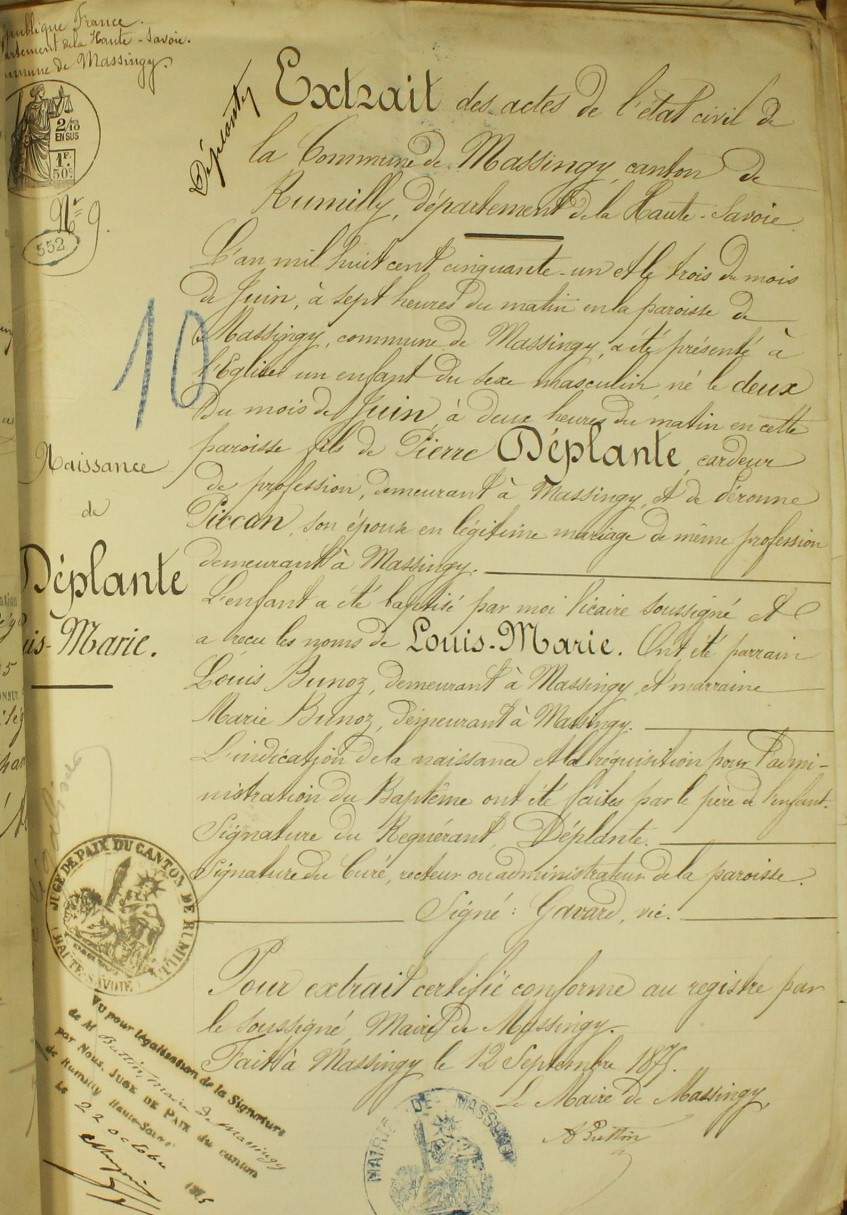 publique France.
artement de la Haute-Savoie.
mmune de Massingy.
2/10
EN SUS
1F.
50c.
N° 9.
552
10
Déplante
Extrait des actes de l'état civil de
la Commune de Massingy, canton de
Rumilly, département de la Haute-Savoie
L'an mil huit cent cinquante-un et le trois du mois
de Juin, à sept heures du matin en la paroisse de
Massingy, commune de Massingy, a été présenté à
l'Eglise un enfant du sexe masculin né le deux
du mois de Juin, à deux heures du matin en cette
paroisse fils de Pierre Déplante, cardeur
de profession, demeurant à Massingy, et de Péronne
Piccon, son épouse en légitime mariage de même profession
demeurant à Massingy.
L'enfant a été baptisé par moi Vicaire soussigné et
a reçu les noms de Louis-Marie. Ont été parrain
Louis Bunoz, demeurant à Massingy, et marraine
Marie Bunoz, demeurant à Massingy.
L'indication de la naissance et la réquisition pour l'admi-
nistration du Baptême ont été faites par le père de l'enfant.
Signature du Requérant, Déplante.
Signature du Curé, recteur ou administrateur de la paroisse.
Signé: Gavard, vic.
Pour extrait certifié conforme au registre par
le soussigné Maire de Massingy.
Fait à Massingy le 12 Septembre 1875.
Le Maire de Massingy,
A Buttin
Naissance
de
Déplante
is-Marie.
JUGE DE PAIX DU CANTON DE RUMILLY
(HAUTE-SAVOIE)
Vu pour légalisation de la Signature
de M Buttin, Maire de Massingy
par Nous, JUGE DE PAIX du canton
de Rumilly Haute-Savoie
Le 22 octobre 1875
MAIRIE DE MASSINGY